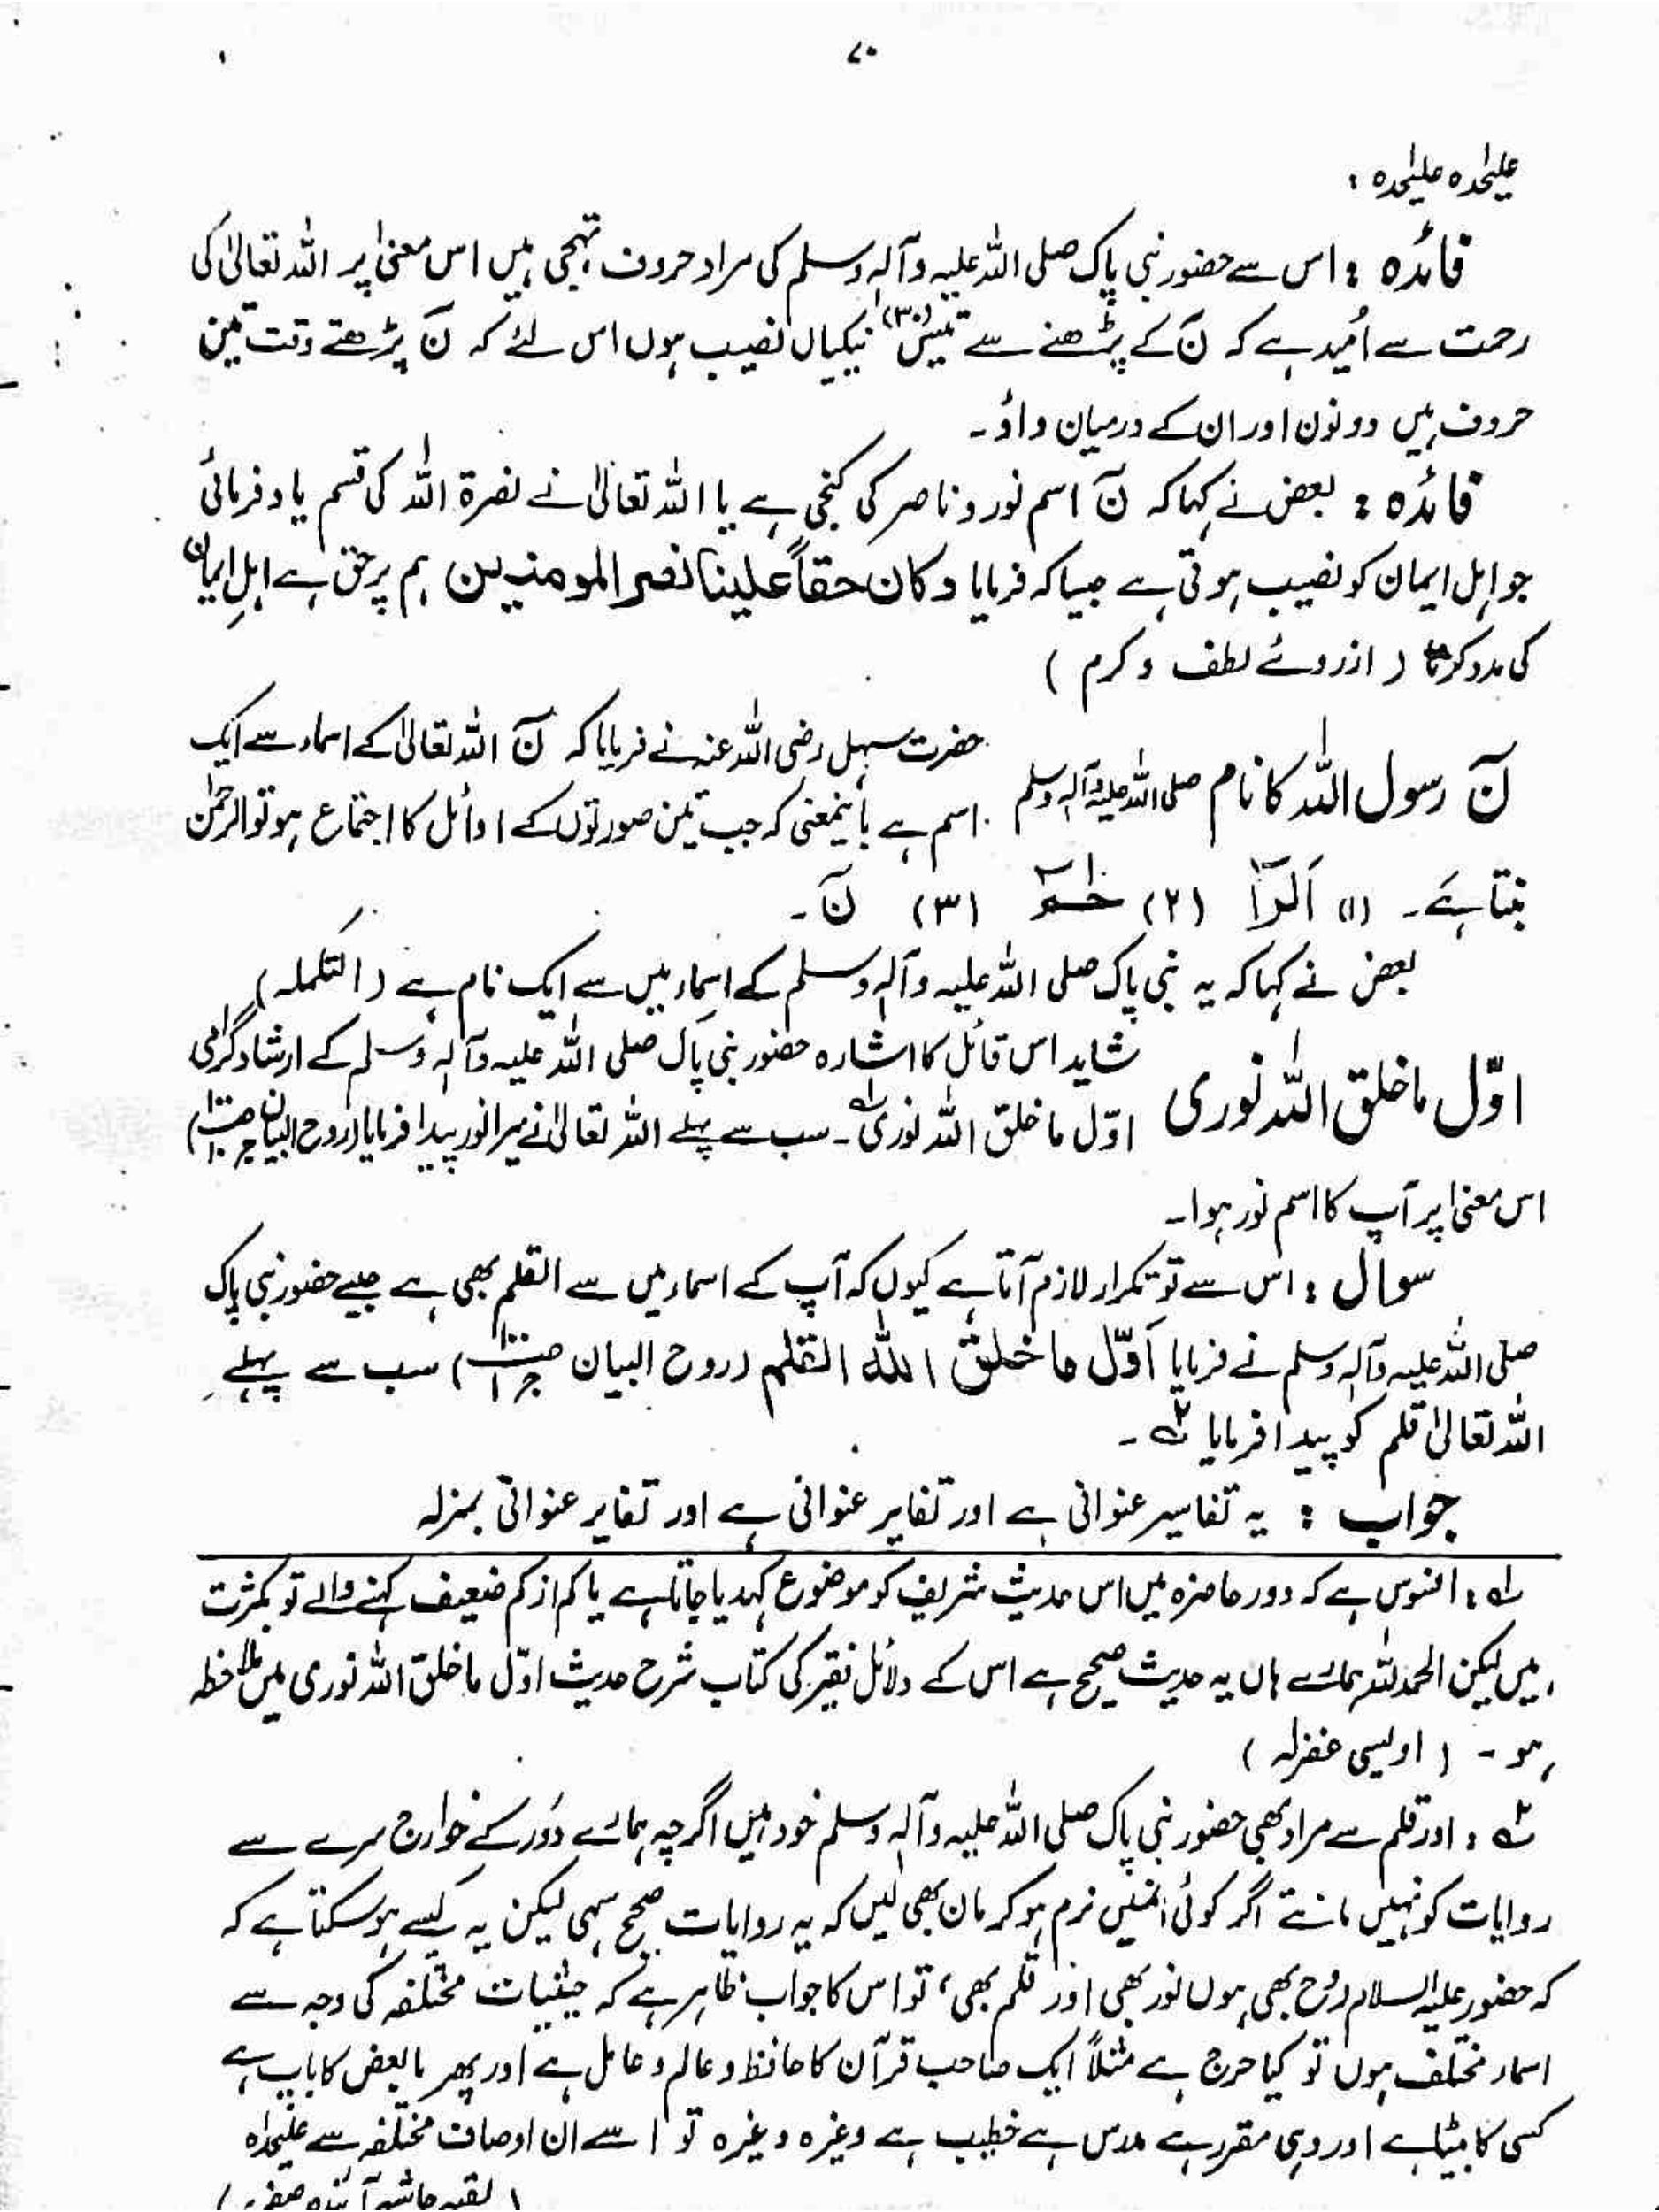 ۷۰
علیٰحدہ علیٰحدہ ؛
فائدہ ؛ اس سے حضور نبی پاک صلی اللہ علیہ وآلہ وسلم کی مراد حروف تہجی ہیں اس معنیٰ پر اللہ تعالیٰ کی
رحمت سے اُمید ہے کہ نٓ کے پڑھنے سے تیس (۳۰) نیکیاں نصیب ہوں اس لئے کہ نٓ پڑھتے وقت تین
حروف ہیں دو نون اور ان کے درمیان واؤ۔
فائدہ ؛ بعض نے کہا کہ نٓ اسم نور و ناصر کی کنجی ہے یا اللہ تعالیٰ نے نصرۃ اللہ کی قسم یاد فرمائی
جو اہل ایمان کو نصیب ہوتی ہے جیسا کہ فرمایا وکان حقاً علینا نصر المومنین ہم پر حق ہے اہلِ ایمان
کی مدد کرنا ( ازروئے لطف و کرم )
نٓ رسول اللہ کا نام صلی اللہ علیہ وآلہ وسلم
حضرت سہل رضی اللہ عنہ نے فرمایا کہ نٓ اللہ تعالیٰ کے اسماء سے ایک
اسم ہے بایمعنی کہ جب تین صورتوں کے اوائل کا اجتماع ہو تو الرحمٰن
بنتا ہے۔ (۱) الٓرٰا (۲) حٰمٓ (۳) نٓ۔
بعض نے کہا کہ یہ نبی پاک صلی اللہ علیہ وآلہ وسلم کے اسماء میں سے ایک نام ہے (التکملہ)
اوّل ما خلق اللہ نوری
شاید اس قائل کا اشارہ حضور نبی پاک صلی اللہ علیہ وآلہ وسلم کے ارشاد گرامی
اوّل ما خلق اللہ نوری ۱؎۔ سب سے پہلے اللہ تعالیٰ نے میرا نور پیدا فرمایا (روح البیان
اس معنیٰ پر آپ کا اسم نور ہوا۔
سوال ؛ اس سے تو تکرار لازم آتا ہے کیوں کہ آپ کے اسماء میں سے القلم بھی ہے جیسے حضور نبی پاک
صلی اللہ علیہ وآلہ وسلم نے فرمایا اَوّل ما خلق اللہ القلم (روح البیان سب سے پہلے
اللہ تعالیٰ قلم کو پیدا فرمایا ۲؎۔
جواب ؛ یہ تفاسیر عنوانی ہے اور تغایر عنوانی ہے اور تغایر عنوانی بمنزلہ
۱؎ ؛ افسوس ہے کہ دور حاضرہ میں اس حدیث شریف کو موضوع کہدیا جاتا ہے یا کم از کم ضعیف کہنے والے تو بکثرت
ہیں لیکن الحمدللہ ہمارے ہاں یہ حدیث صحیح ہے اس کے دلائل فقیر کی کتاب شرح حدیث اوّل ما خلق اللہ نوری میں ملاحظہ
ہو۔ ( اویسی غفرلہ )
۲؎ ؛ اور قلم سے مراد بھی حضور نبی پاک صلی اللہ علیہ وآلہ وسلم خود ہیں اگرچہ ہمارے دَور کے خوارج سرے سے
روایات کو نہیں مانتے اگر کوئی انہیں نرم ہو کر مان بھی لیں کہ یہ روایات صحیح سہی لیکن یہ کیسے ہو سکتا ہے کہ
کہ حضور علیہ السلام روح بھی ہوں نور بھی اور قلم بھی، تو اس کا جواب ظاہر ہے کہ حیثیات مختلفہ کی وجہ سے
اسماء مختلف ہوں تو کیا حرج ہے مثلاً ایک صاحب قرآن کا حافظ و عالم و عامل ہے اور پھر بالعض کا باپ ہے
کسی کا بیٹا ہے اور وہی مقرر ہے مدرس ہے خطیب ہے وغیرہ وغیرہ تو اسے ان اوصاف مختلفہ سے علیٰحدہ
( بقیہ حاشیہ آئندہ صفحہ )